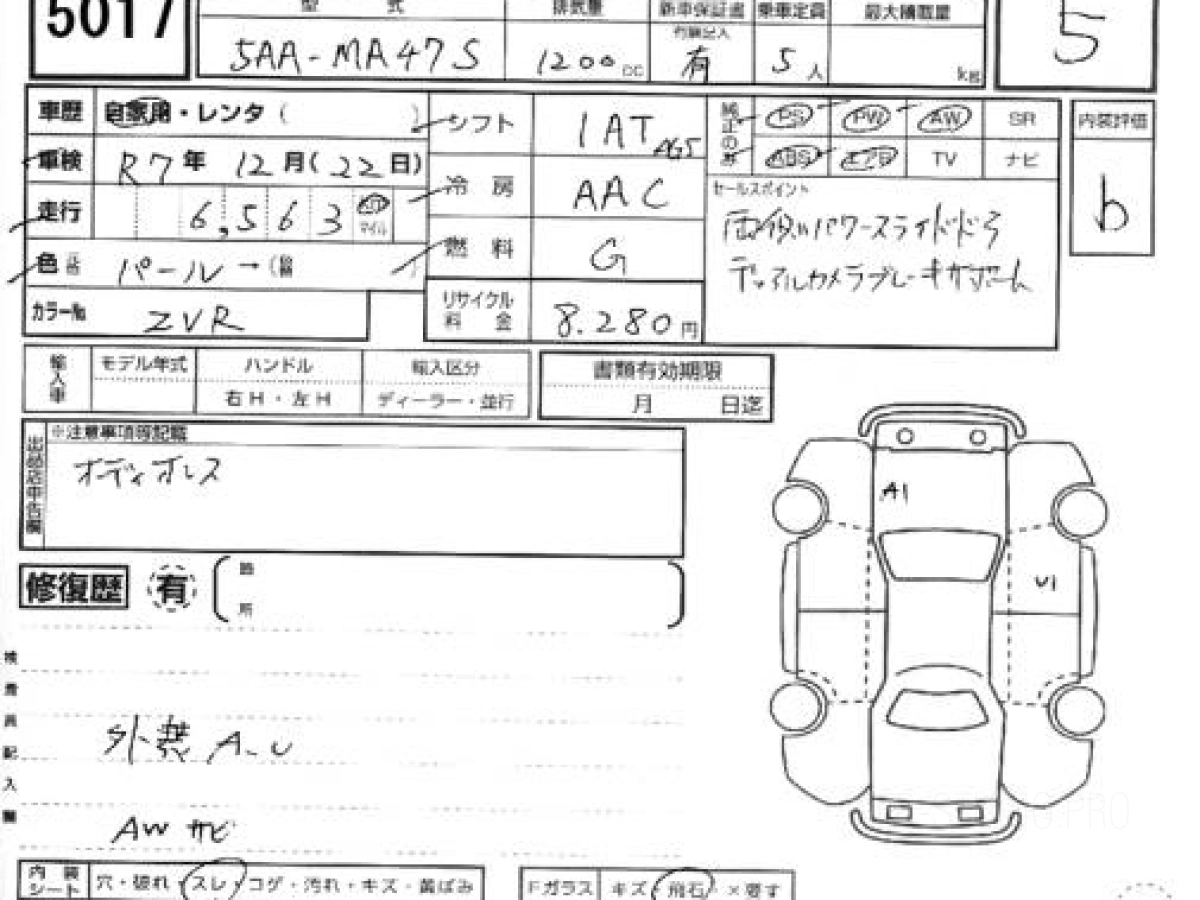 5017
型 式 排気量 新車保証書 乗車定員 最大積載量
有 5
5AA-MA47S 1200cc 5人 kg
車歴 自家用・レンタ( ) シフト 1AT AGS 純正のみ PS PW AW SR 内装評価
車検 R7年 12月(22日) ABS エアB TV ナビ
走行 6,563 km マイル 冷房 AAC セールスポイント b
両側パワースライドドア
色 パール→( ) 燃料 G デュアルカメラブレーキサポート
カラーNo ZVR リサイクル料金 8.280円
輸入車 モデル年式 ハンドル 輸入区分 書類有効期限
右H・左H ディーラー・並行 月 日迄
出品店申告欄 ※注意事項等記載
オーディオレス
A1
修復歴 有 箇所
U1
検査員記入欄
外装 A-U
AW サビ
内装シート 穴・破れ・スレ・コゲ・汚れ・キズ・黄ばみ Fガラス キズ・飛石・×要す